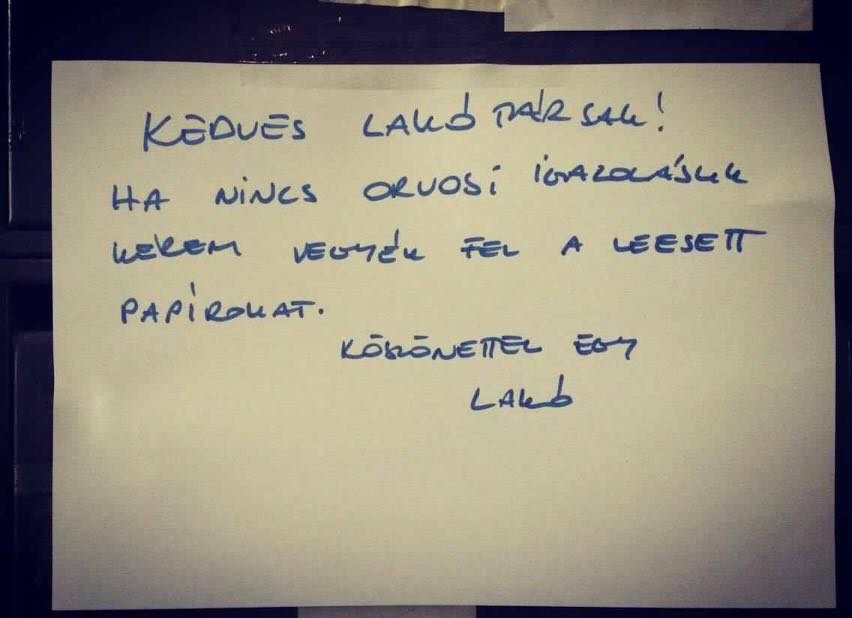 KEDVES LAKÓTÁRSAK!
HA NINCS ORVOSI IGAZOLÁSUK
KÉREM VEGYÉK FEL A LEESETT
PAPÍROKAT.
KÖSZÖNETTEL EGY
LAKÓ